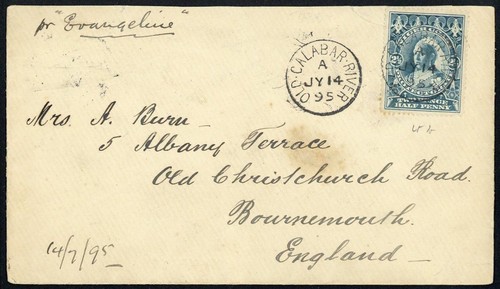 pr "Evangeline"
OLD·CALABAR·RIVER
A
JY 14
95
HALF PENNY
Mrs A. Burn
5 Albany Terrace
Old Christchurch Road.
Bournemouth.
England
14/7/95